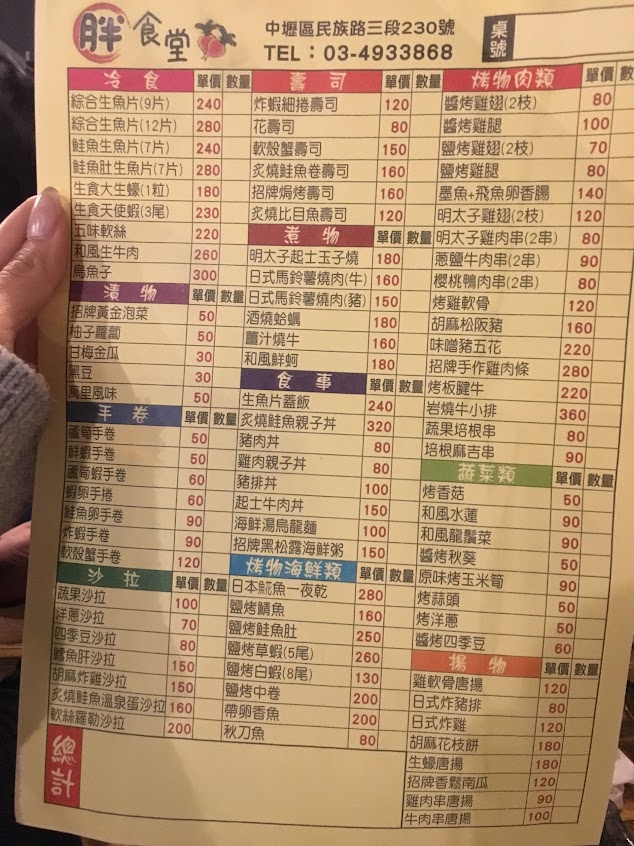 胖食堂
中壢區民族路三段230號
TEL：03-4933868
桌號
冷食 單價 數量
綜合生魚片(9片) 240
綜合生魚片(12片) 280
鮭魚生魚片(7片) 240
鮭魚肚生魚片(7片) 280
生食大生蠔(1粒) 180
生食天使蝦(3尾) 230
五味軟絲 220
和風生牛肉 260
烏魚子 300
漬物 單價 數量
招牌黃金泡菜 50
柚子蘿蔔 50
甘梅金瓜 30
黑豆 30
萬里風味 50
手卷 單價 數量
蘆筍手卷 50
鮮蝦手卷 50
蘆筍蝦手卷 60
蝦卵手捲 60
鮭魚卵手卷 90
炸蝦手卷 90
軟殼蟹手卷 120
沙拉 單價 數量
蔬果沙拉 100
洋蔥沙拉 70
四季豆沙拉 80
鱈魚肝沙拉 150
胡麻炸雞沙拉 150
炙燒鮭魚溫泉蛋沙拉 160
軟絲羅勒沙拉 200
總計
壽司 單價 數量
炸蝦細捲壽司 120
花壽司 80
軟殼蟹壽司 150
炙燒鮭魚卷壽司 160
招牌焗烤壽司 160
炙燒比目魚壽司 120
煮物 單價 數量
明太子起士玉子燒 180
日式馬鈴薯燒肉(牛) 160
日式馬鈴薯燒肉(豬) 150
酒燒蛤蠣 180
薑汁燒牛 160
和風鮮蚵 180
食事 單價 數量
生魚片蓋飯 240
炙燒鮭魚親子丼 320
豬肉丼 80
雞肉親子丼 80
豬排丼 100
起士牛肉丼 150
海鮮湯烏龍麵 100
招牌黑松露海鮮粥 150
烤物海鮮類 單價 數量
日本𩸽魚一夜乾 280
鹽烤鯖魚 160
鹽烤鮭魚肚 250
鹽烤草蝦(5尾) 260
鹽烤白蝦(8尾) 130
鹽烤中卷 200
帶卵香魚 200
秋刀魚 80
烤物肉類 單價 數量
醬烤雞翅(2枝) 80
醬烤雞腿 100
鹽烤雞翅(2枝) 70
鹽烤雞腿 80
墨魚+飛魚卵香腸 140
明太子雞翅(2枝) 120
明太子雞肉串(2串) 80
蔥鹽牛肉串(2串) 90
櫻桃鴨肉串(2串) 80
烤雞軟骨 120
胡麻松阪豬 160
味噌豬五花 220
招牌手作雞肉條 280
烤板腱牛 220
岩燒牛小排 360
蔬果培根串 80
培根麻吉串 90
蔬菜類 單價 數量
烤香菇 50
和風水蓮 90
和風龍鬚菜 90
醬烤秋葵 50
原味烤玉米筍 90
烤蒜頭 50
烤洋蔥 50
醬烤四季豆 60
揚物 單價 數量
雞軟骨唐揚 120
日式炸豬排 80
日式炸雞 120
胡麻花枝餅 180
生蠔唐揚 180
招牌香鬆南瓜 120
雞肉串唐揚 90
牛肉串唐揚 100